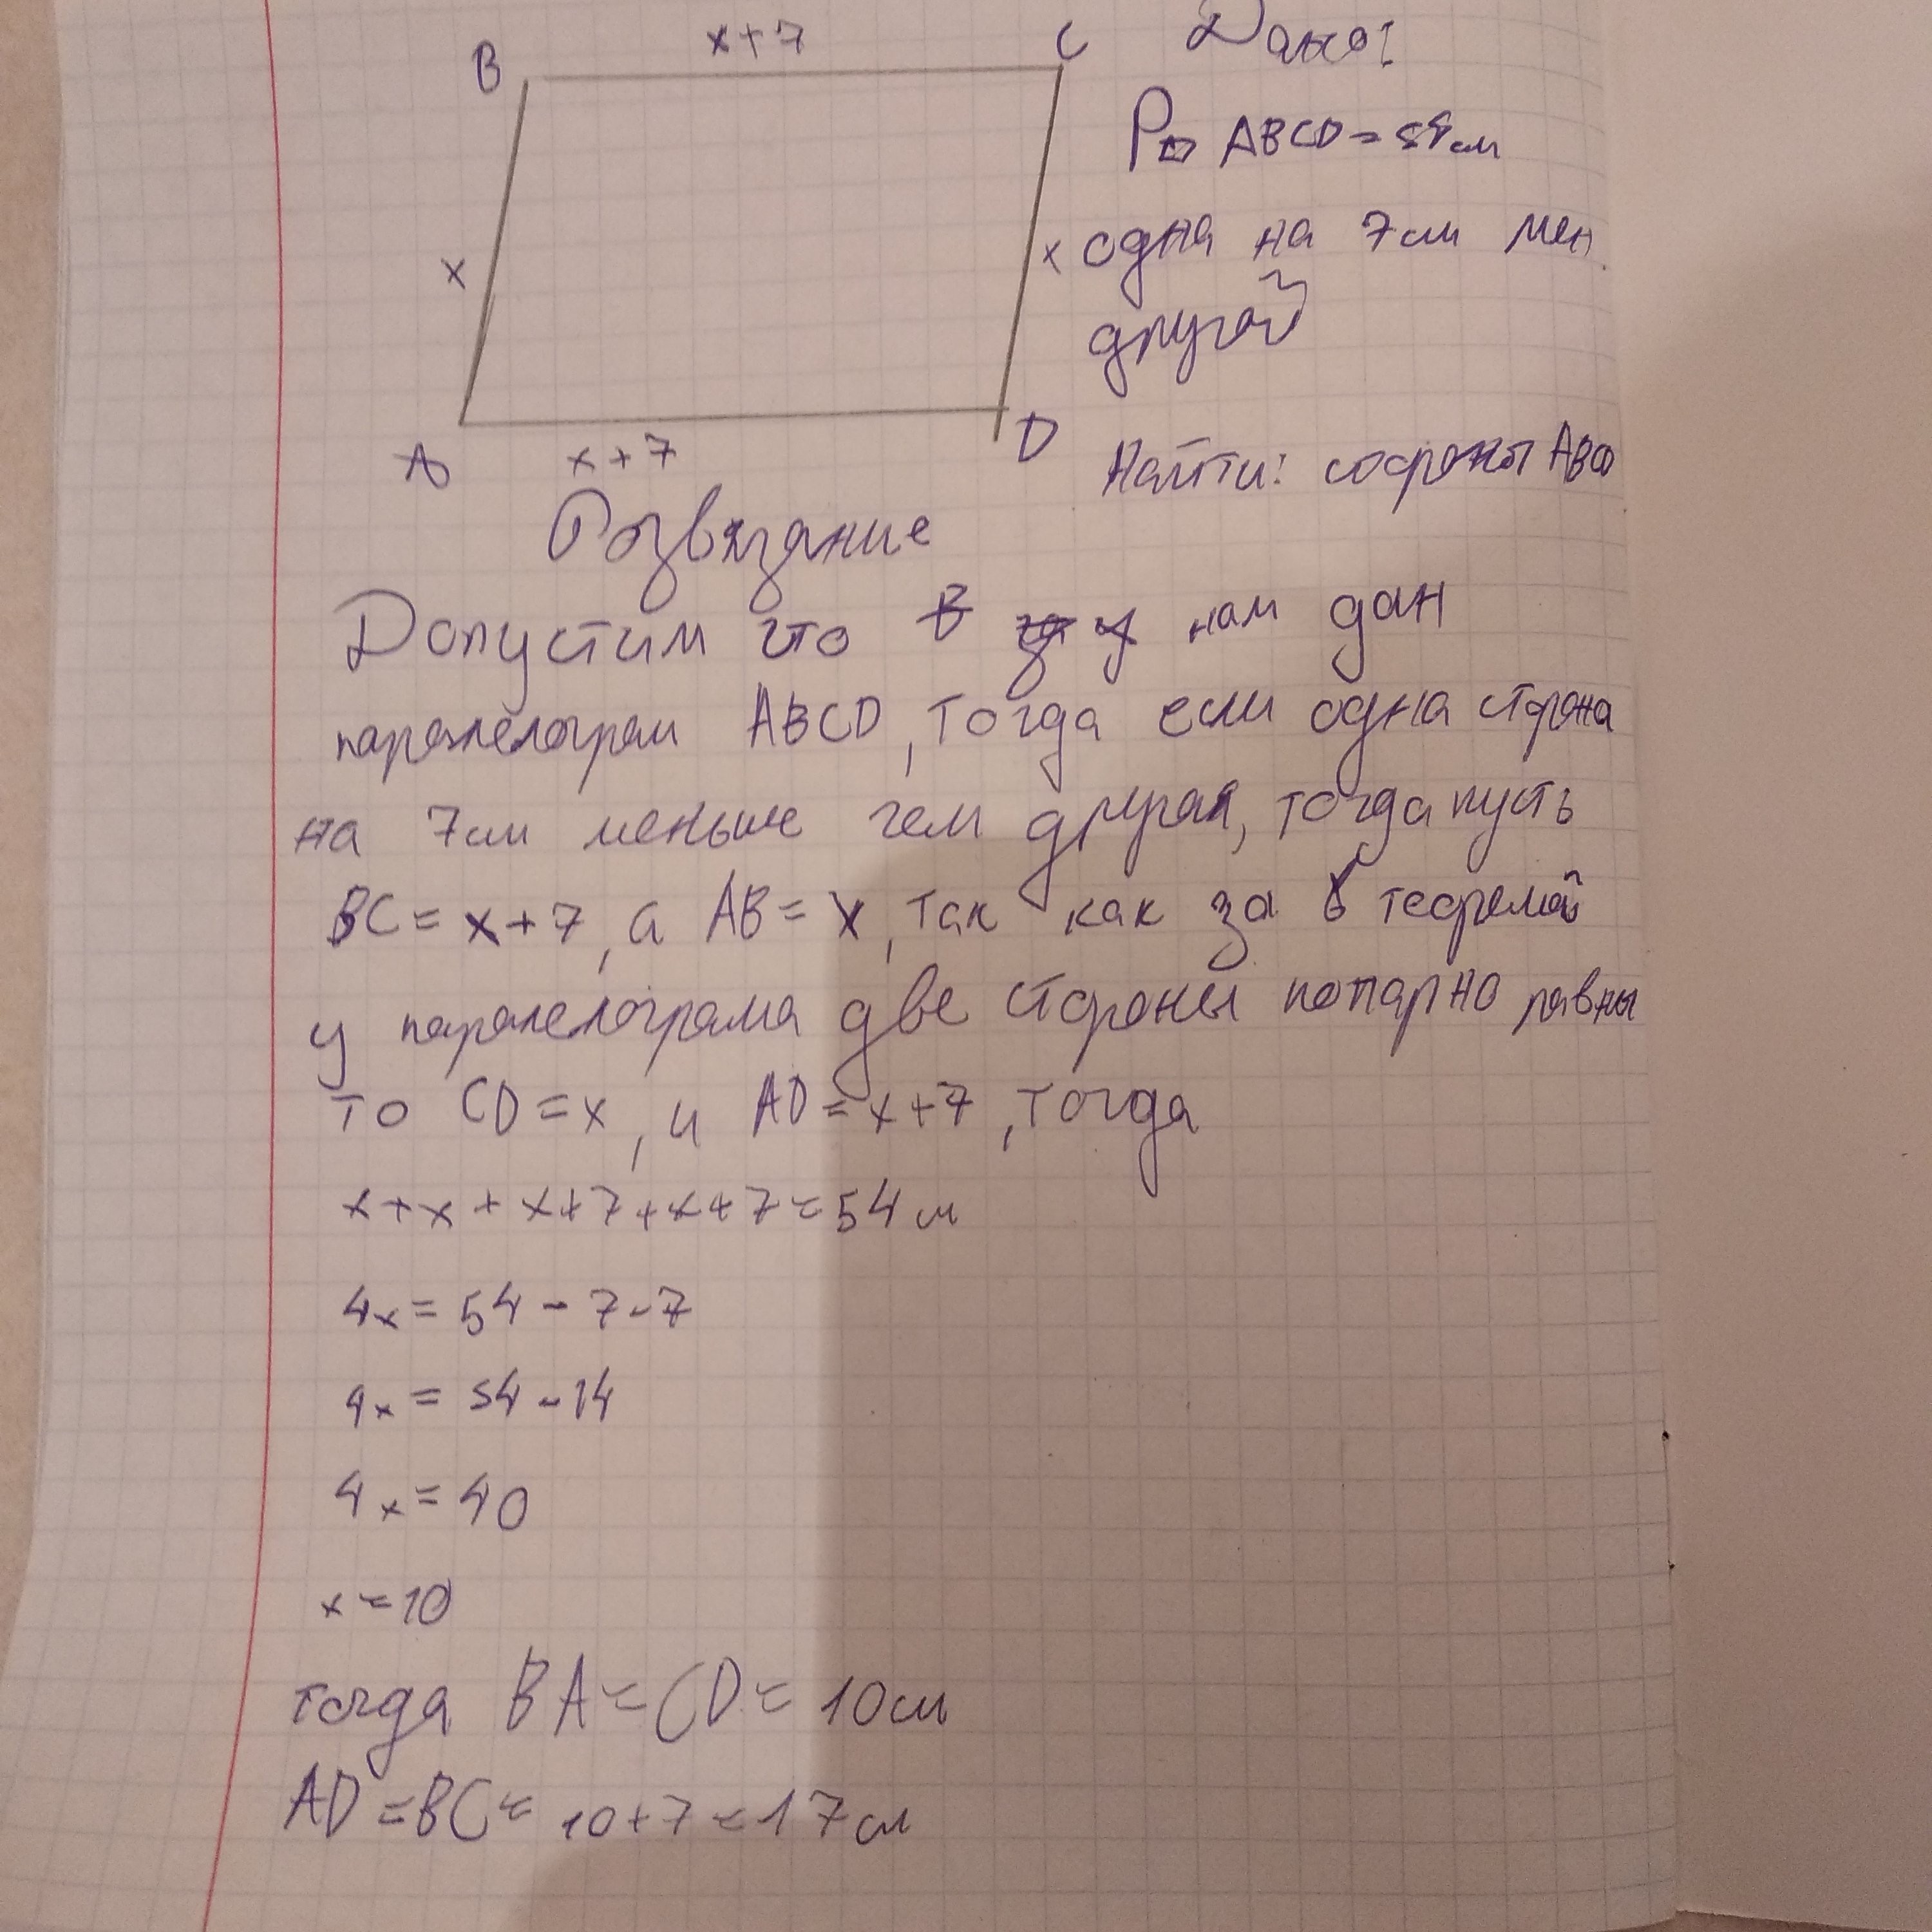 B x+7 C Дано:
P▱ ABCD = 54см
x x одна на 7см мен.
другой
A x+7 D Найти: стороны ABCD
Розвязание
Допустим что нам дан
паралелограм ABCD, тогда если одна сторона
на 7см меньше чем другая, тогда пусть
BC = x+7, а AB = x, так как за теоремой
у паралелограма две стороны попарно равны
то CD = x, и AD = x+7, тогда
x + x + x+7 + x+7 = 54 см
4x = 54 - 7 - 7
4x = 54 - 14
4x = 40
x = 10
тогда BA = CD = 10см
AD = BC = 10+7 = 17см